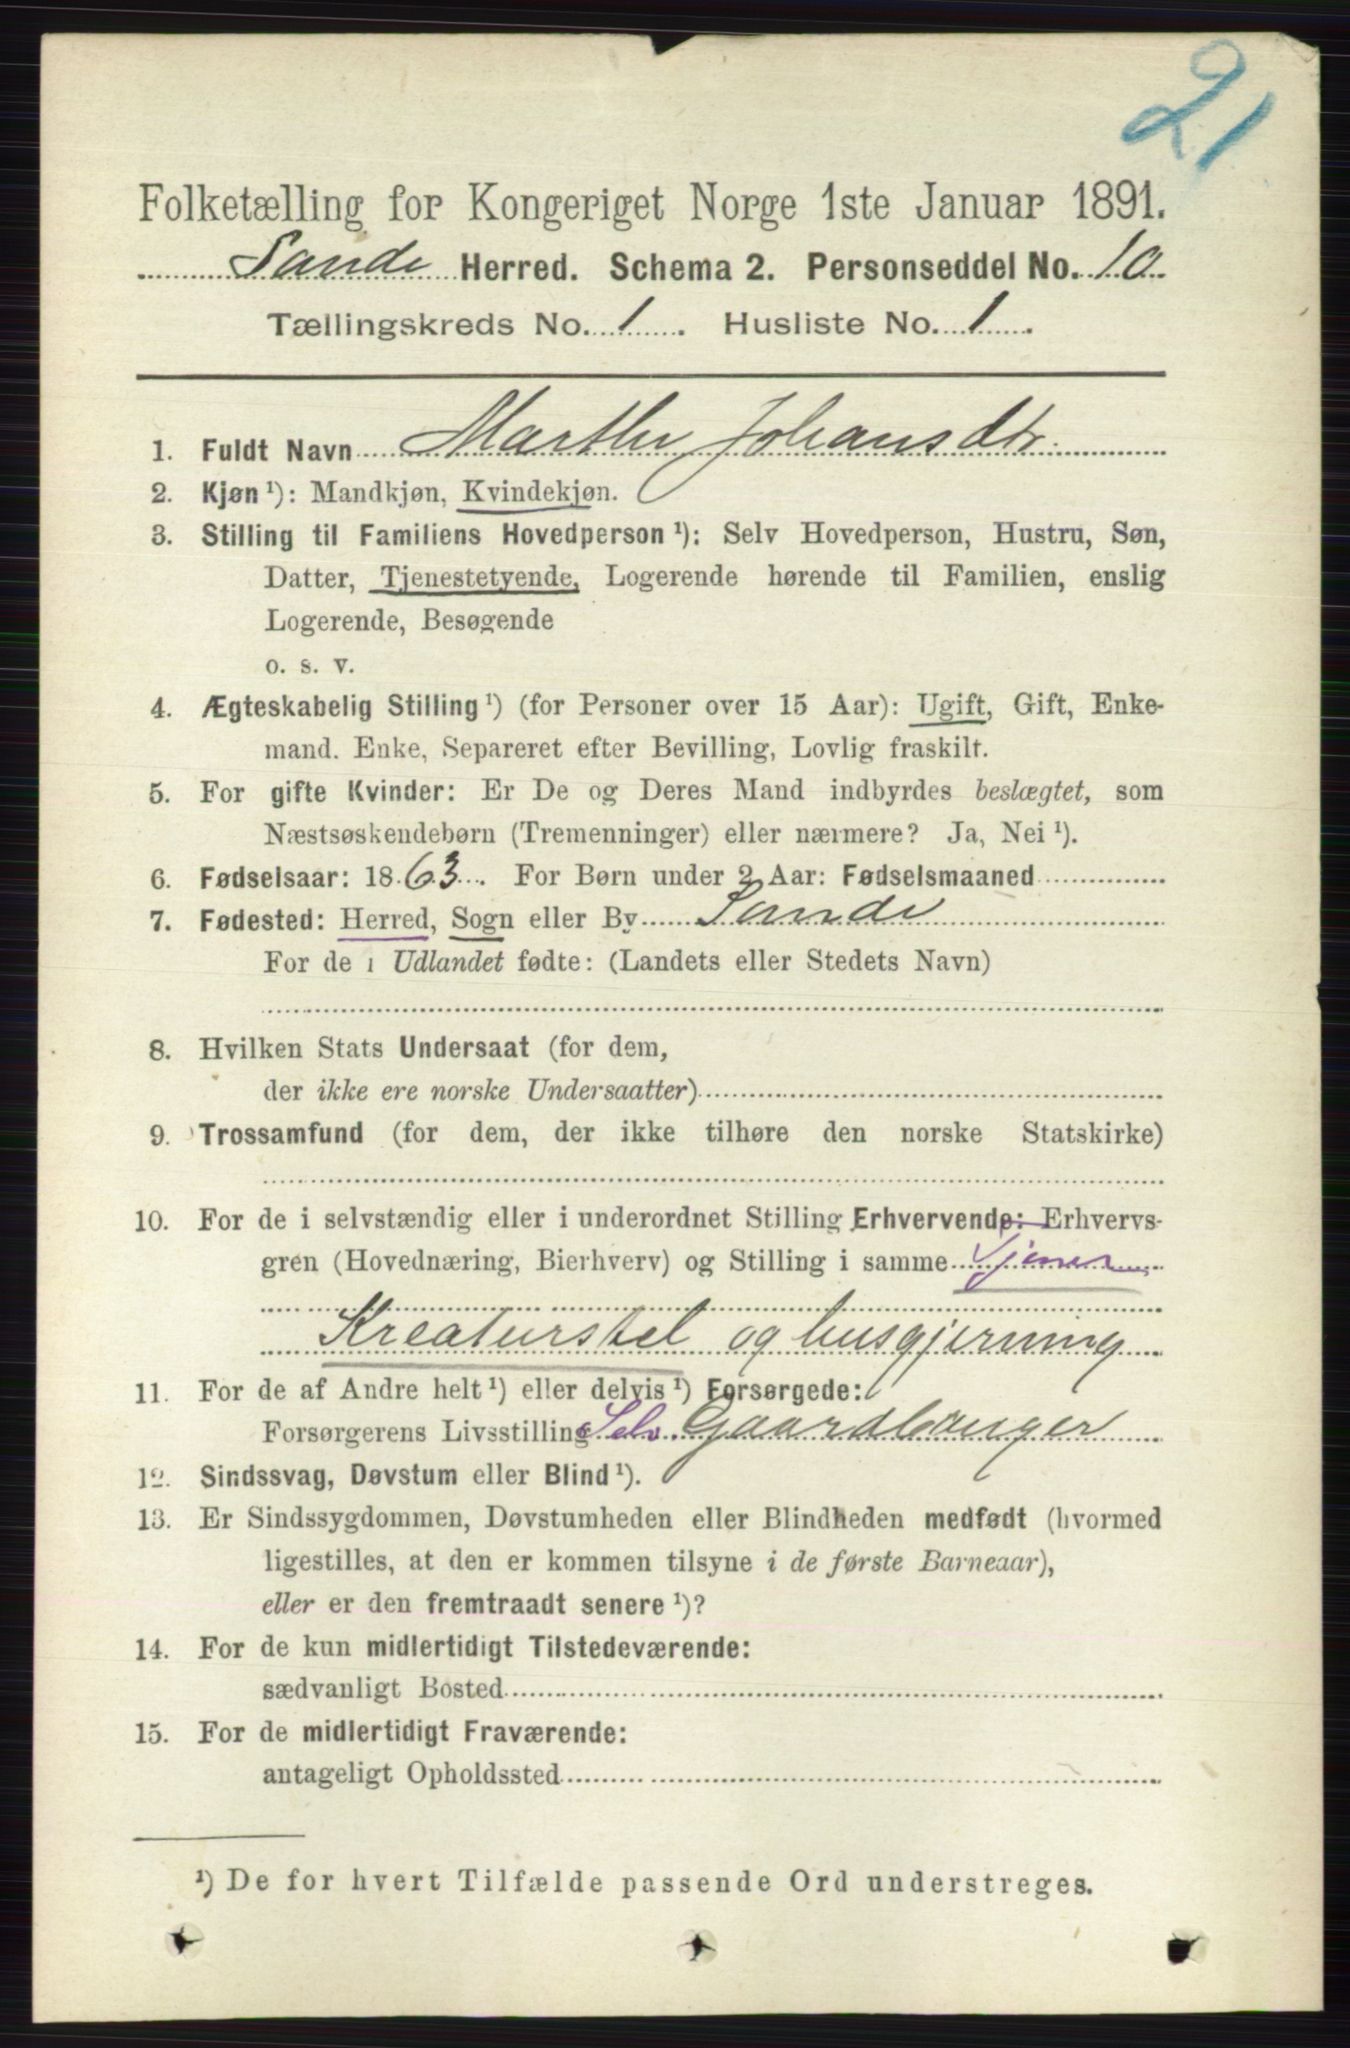 21
Folketælling for Kongeriget Norge 1ste Januar 1891.
Sande Herred. Schema 2. Personseddel No. 10
Tællingskreds No. 1. Husliste No. 1.
1. Fuldt Navn Marthe Johansdtr.
2. Kjøn ¹): Mandkjøn, Kvindekjøn.
3. Stilling til Familiens Hovedperson ¹): Selv Hovedperson, Hustru, Søn,
Datter, Tjenestetyende, Logerende hørende til Familien, enslig
Logerende, Besøgende
o. s. v.
4. Ægteskabelig Stilling ¹) (for Personer over 15 Aar): Ugift, Gift, Enke-
mand. Enke, Separeret efter Bevilling, Lovlig fraskilt.
5. For gifte Kvinder: Er De og Deres Mand indbyrdes beslægtet, som
Næstsøskendebørn (Tremenninger) eller nærmere? Ja, Nei ¹).
6. Fødselsaar: 1863. For Børn under 2 Aar: Fødselsmaaned
7. Fødested: Herred, Sogn eller By Sande
For de i Udlandet fødte: (Landets eller Stedets Navn)
8. Hvilken Stats Undersaat (for dem,
der ikke ere norske Undersaatter)
9. Trossamfund (for dem, der ikke tilhøre den norske Statskirke)
10. For de i selvstændig eller i underordnet Stilling Erhvervende: Erhvervs-
gren (Hovednæring, Bierhverv) og Stilling i samme Tjener
Kreaturstel og husgjerning
11. For de af Andre helt ¹) eller delvis ¹) Forsørgede:
Forsørgerens Livsstilling Selv. Gaardbruger
12. Sindssvag, Døvstum eller Blind ¹).
13. Er Sindssygdommen, Døvstumheden eller Blindheden medfødt (hvormed
ligestilles, at den er kommen tilsyne i de første Barneaar),
eller er den fremtraadt senere ¹)?
14. For de kun midlertidigt Tilstedeværende:
sædvanligt Bosted
15. For de midlertidigt Fraværende:
antageligt Opholdssted
¹) De for hvert Tilfælde passende Ord understreges.